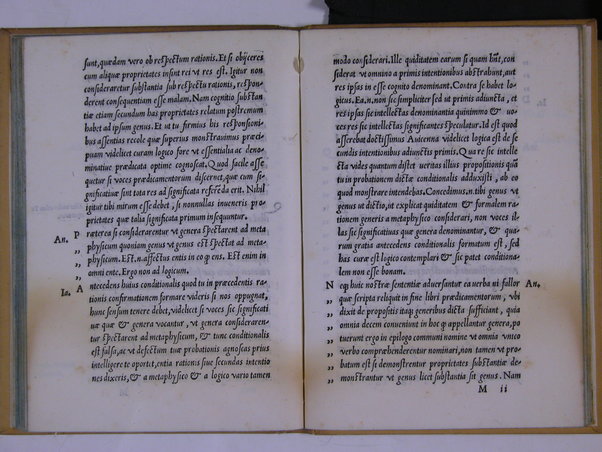 sunt, quædam vero ob respectum rationis. Et si obijceres
cum aliquæ proprietates insint rei vt res est. Igitur non
consideraretur substantia sub respectu rationis, respon-
derent consequentiam esse malam. Nam cognitio substan
tiæ etiam secundum has proprietates relatum postremum
habet ad ipsum genus. Et at tu firmius his responsioni-
bus assentias recole quæ superius monstrauimus præci-
puam videlicet curam logico fore vt essentialia ac deno-
minatiue prædicata optime cognoscat. Quod facile asse
quetur si voces prædicamentorum discernet, quæ cum si-
gnificatiuæ sint tota res ad significata referēda erit. Nihil
igitur tibi mirum esse debet, si nonnullas inueneris pro-
prietates quæ talia significata primum insequuntur.
An. P ræterea si considerarentur vt genera spectarent ad meta
„ physicum quoniam genus vt genus est spectat ad meta-
„ physicum. Est. n. affectus entis in eo ꝙ ens. Est enim in
„ omni ente. Ergo non ad logicum.
Ia. A ntecedens huius conditionalis quod tu in præcedentis ra-
tionis confirmationem formare videris si nos oppugnat,
hunc sensum tenere debet, videlicet si voces sic significati
uæ quæ & genera vocantur, vt genera consideraren-
tur spectarent ad metaphysicum, & tunc conditionalis
est falsa, ac vt defectum tuæ probationis agnoscas prius
intelligere te oportet, entia rationis siue secundas intentio
nes dixeris, & a metaphysico & a logico vario tamen
modo considerari. Ille quiditatem earum si quam hn̄t, con
siderat vt omnino a primis intentionibus abstrahunt, aut
res ipsas in esse cognito denominant. Contra se habet lo-
gicus. Ea. n. non sic simpliciter sed ut primis adiuncta, et
res ipsas sic intellectas denominantia quinimmo & uo-
ces res sic intellectas significantes speculatur. Id est quod
asserebat doctissimus Auicenna videlicet logica est de se
cundis intentionibus adiunctis primis. Quare si intelle
cta vides quantum distet ueritas illius propositionis quā
tu in probationem dictæ conditionalis adduxisti, ab eo
quod monstrare intendebas. Concedimus. n. tibi genus vt
genus ut dictio, vt explicat quiditatem & formalem ra
tionem generis a metaphysico considerari, non voces il-
las sic significatiuas quæ genera denominantur, & qua-
rum gratia antecedens conditionalis formatum est, sed
has curæ est logico contemplari & sic patet conditiona-
lem non esse bonam.
N eqꝫ huic nostræ sententiæ aduersantur ea uerba ni fallor An.
„ quæ scripta reliquit in fine libri prædicamentorum, vbi
„ dixit de propositis itaqꝫ generibus dicta sufficiunt, quia
„ omnia decem conueniunt in hoc ꝙ appellantur genera, po
„ tuerunt ergo in epilogo communi nomine vt omnia vnico
„ verbo compræhenderentur nominari, non tamen vt pro-
„ batum est si demonstrentur proprietates substantiæ de-
„ monstrantur vt genus licet substantia sit genus. Nam
M ii